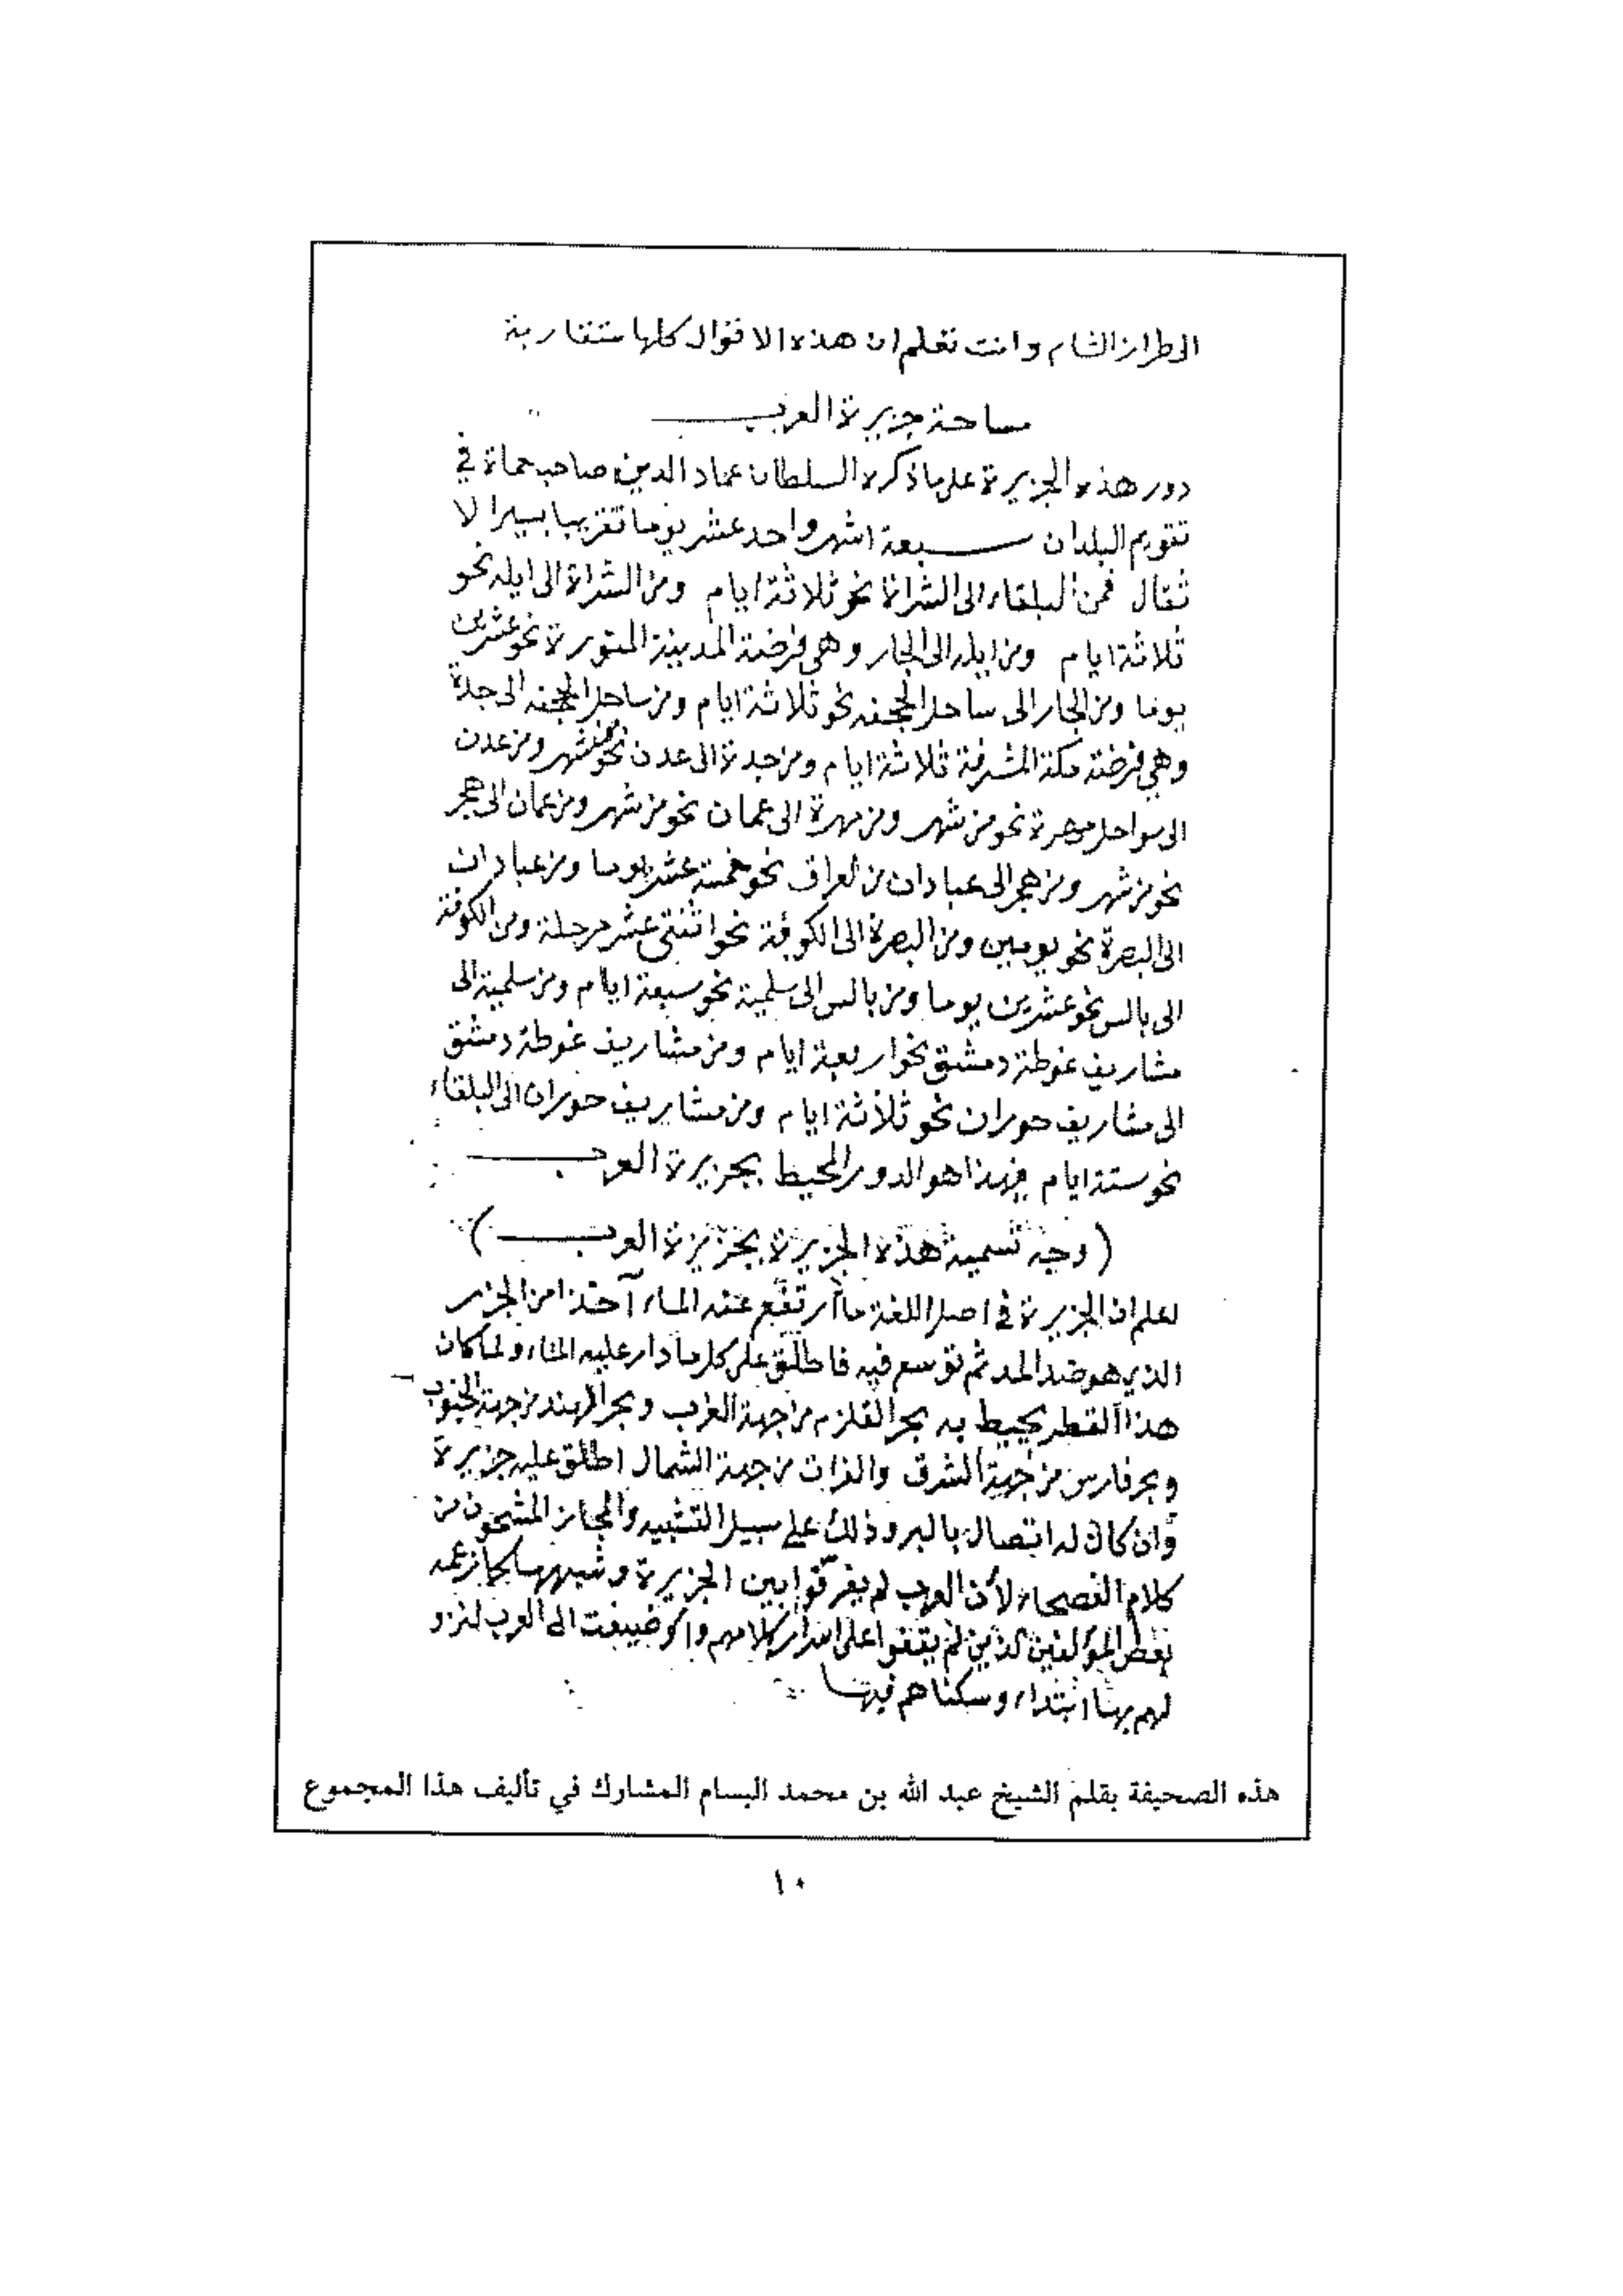 الى طرار الشام وانت تعلم ان هذه الاقوال كلها متقاربة
مساحة جزيرة العرب
دور هذه الجزيرة على ما ذكره السلطان عماد الدين صاحب حماة في
تقويم البلدان سبعة اشهر واحد عشر يوما تقريبا بسير الا
ثقال فمن البلقاء الى الشراة نحو ثلاثة ايام ومن الشراة الى ايله نحو
ثلاثة ايام ومن ايله الى الجار وهي فرضة المدينة المنورة نحو عشرين
يوما ومن الجار الى ساحل الجحفه نحو ثلاثة ايام ومن ساحل الجحفه الى جدة
وهي فرضة مكة المشرفة ثلاثة ايام ومن جدة الى عدن نحو من شهر ومن عدن
الى سواحل مهرة نحو من شهر ومن مهرة الى عمان نحو من شهر ومن عمان الى هجر
نحو من شهر ومن هجر الى عبادان من العراق نحو خمسة عشر يوما ومن عبادان
الى البصرة نحو يومين ومن البصرة الى الكوفة نحو اثنتي عشر مرحلة ومن الكوفة
الى بالس نحو عشرين يوما ومن بالس الى سلمية نحو سبعة ايام ومن سلمية الى
مشاريف غوطة دمشق نحو اربعة ايام ومن مشاريف غوطة دمشق
الى مشاريف حوران نحو ثلاثة ايام ومن مشاريف حوران الى البلقاء
نحو ستة ايام فهذا هو الدور المحيط بجزيرة العرب
(وجه تسمية هذه الجزيرة بجزيرة العرب)
اعلم ان الجزيرة في اصل اللغة ما ارتفع عنه الماء آخذا من الجزر
الذي هو ضد المد ثم توسع فيه فاطلق على كل ما دار عليه الماء ولما كان
هذا القطر يحيط به بحر القلزم من جهة الغرب وبحر الهند من جهة الجنوب
وبحر فارس من جهة الشرق والفرات من جهة الشمال اطلق عليه جزيرة
وان كان له اتصال بالبر وذلك على سبيل التشبيه والمجاز المشحون من
كلام الفصحاء لأن العرب لم يفرقوا بين الجزيرة وشبهها كما زعمه
بعض المؤلفين الذين لم يقفوا على اسرار كلامهم واضيفت الى العرب لنزو
لهم بها ابتداء وسكناهم فيها
هذه الصحيفة بقلم الشيخ عبد الله بن محمد البسام المشارك في تأليف هذا المجموع
١٠